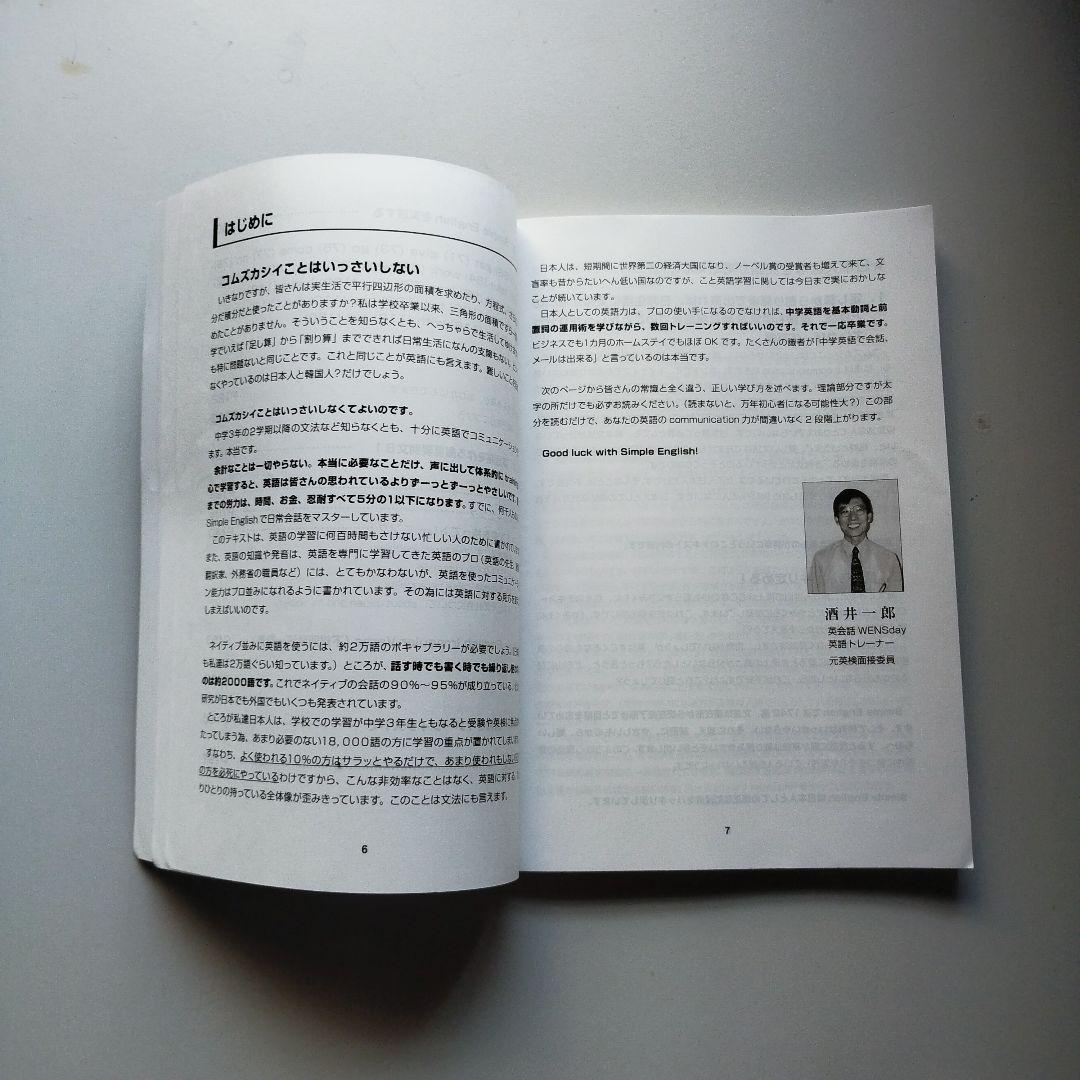 はじめに
コムズカシイことはいっさいしない
いきなりですが、皆さんは実生活で平行四辺形の面積を求めたり、方程式、
分だ積分だと使ったことがありますか?私は学校卒業以来、三角形の面積ですら
めたことがありません。そういうことを知らなくとも、へっちゃらで生活して
学でいえば「足し算」から「割り算」までできれば日常生活になんの支障もない。
も特に問題ないと同じことです。これと同じことが英語にも言えます。難しいこと
なくやっているのは日本人と韓国人?だけでしょう。
コムズカシイことはいっさいしなくてよいのです。
中学3年の2学期以降の文法など知らなくとも、十分に英語でコミュニケーション
ます。本当です。
余計なことは一切やらない。本当に必要なことだけ、声に出して体系的に training
心で学習すると、英語は皆さんの思われているよりずーっとずーっとやさしいです。
までの労力は、時間、お金、忍耐すべて5分の1以下になります。すでに、何千人
Simple Englishで日常会話をマスターしています。
このテキストは、英語の学習に何百時間もさけない忙しい人のために書かれています
また、英語の知識や発音は、英語を専門に学習してきた英語のプロ(英語の先生、
翻訳家、外務省の職員など)には、とてもかなわないが、英語を使ったコミュニケーショ
ン能力はプロ並みになれるように書かれています。その為には英語に対する見方を
しまえばいいのです。
ネイティブ並みに英語を使うには、約2万語のボキャブラリーが必要でしょう。
も私達は2万語ぐらい知っています。)ところが、話す時でも書く時でも繰り返し
のは約2000語です。これでネイティブの会話の90%〜95%が成り立っている、
研究が日本でも外国でもいくつも発表されています。
ところが私達日本人は、学校での学習が中学3年生ともなると受験や英検に
たってしまう為、あまり必要のない18,000語の方に学習の重点が置かれてしまい
すなわち、よく使われる10%の方はサラッとやるだけで、あまり使われもしない
の方を必死にやっているわけですから、こんな非効率なことはなく、英語に対する
りひとりの持っている全体像が歪みきっています。このことは文法にも言えます。
6
日本人は、短期間に世界第二の経済大国になり、ノーベル賞の受賞者も増えて来て、文
盲率も昔からたいへん低い国なのですが、こと英語学習に関しては今日まで実におかしな
ことが続いています。
日本人としての英語力は、プロの使い手になるのでなければ、中学英語を基本動詞と前
置詞の運用術を学びながら、数回トレーニングすればいいのです。それで一応卒業です。
ビジネスでも1カ月のホームステイでもほぼOKです。たくさんの識者が「中学英語で会話、
メールは出来る」と言っているのは本当です。
次のページから皆さんの常識と全く違う、正しい学び方を述べます。理論部分ですが太
字の所だけでも必ずお読みください。(読まないと、万年初心者になる可能性大?)この部
分を読むだけで、あなたの英語のcommunication力が間違いなく2段階上がります。
Good luck with Simple English!
酒井一郎
英会話WENSday
英語トレーナー
元英検面接委員
7